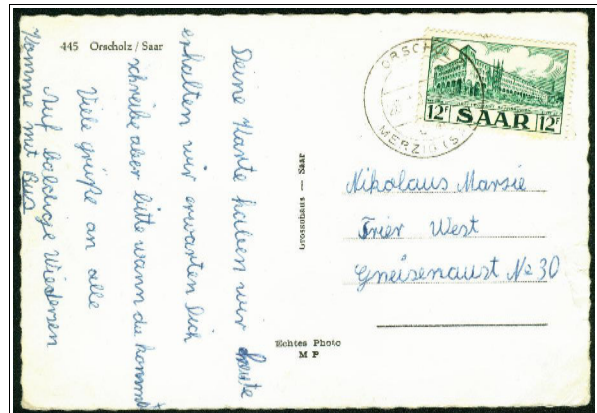 445 Orscholz / Saar
Deine Karte haben wir heute
erhalten wir erwarten dich
schreibe aber bitte wann du kommst
Viele grüße an alle
Auf baldige Wiedersen
Komme mit Bus
Grosschaus — Saar
Echtes Photo
M P
ORSCH
MERZIG (S
12F SAAR 12F
Nikolaus Marsie
Trier West
Gneisenaust No 30